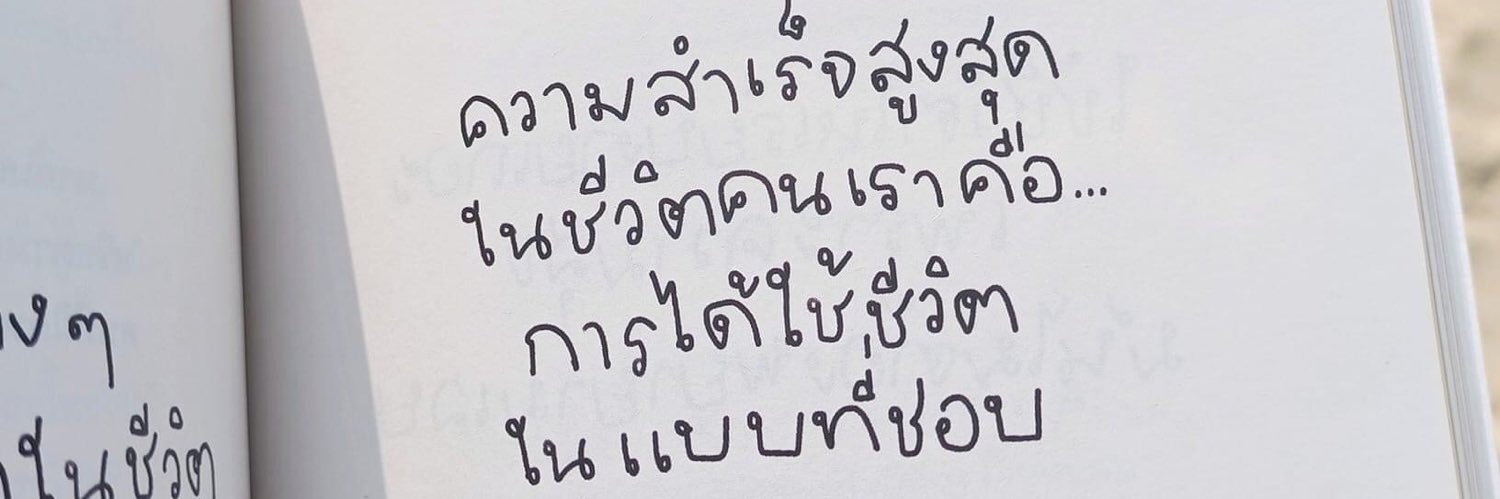 ความสำเร็จสูงสุด
ในชีวิตคนเราคือ...
การได้ใช้ชีวิต
ในแบบที่ชอบ
ๆ
ในชีวิต